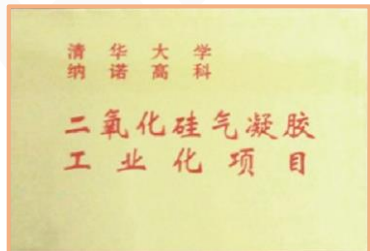 清华大学
纳诺高科
二氧化硅气凝胶
工业化项目